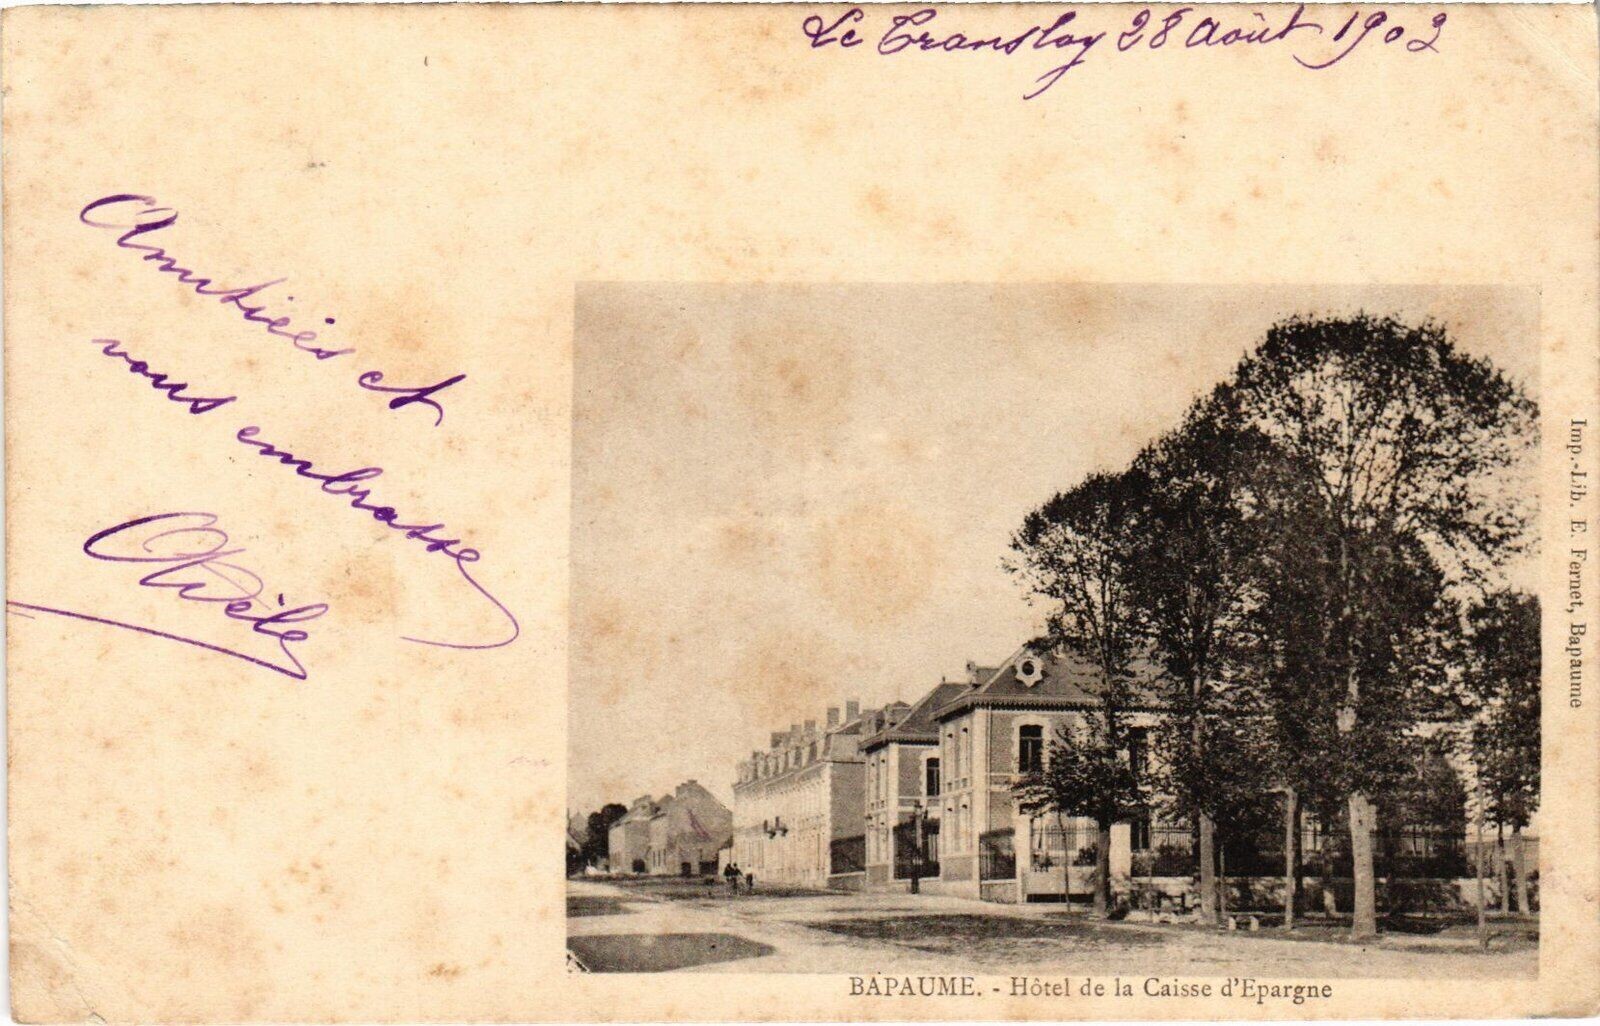 Le Transloy 28 Août 1903
Amitiés et
vous embrasse
BAPAUME. - Hôtel de la Caisse d'Epargne
Imp.-Lib. E. Fernet, Bapaume